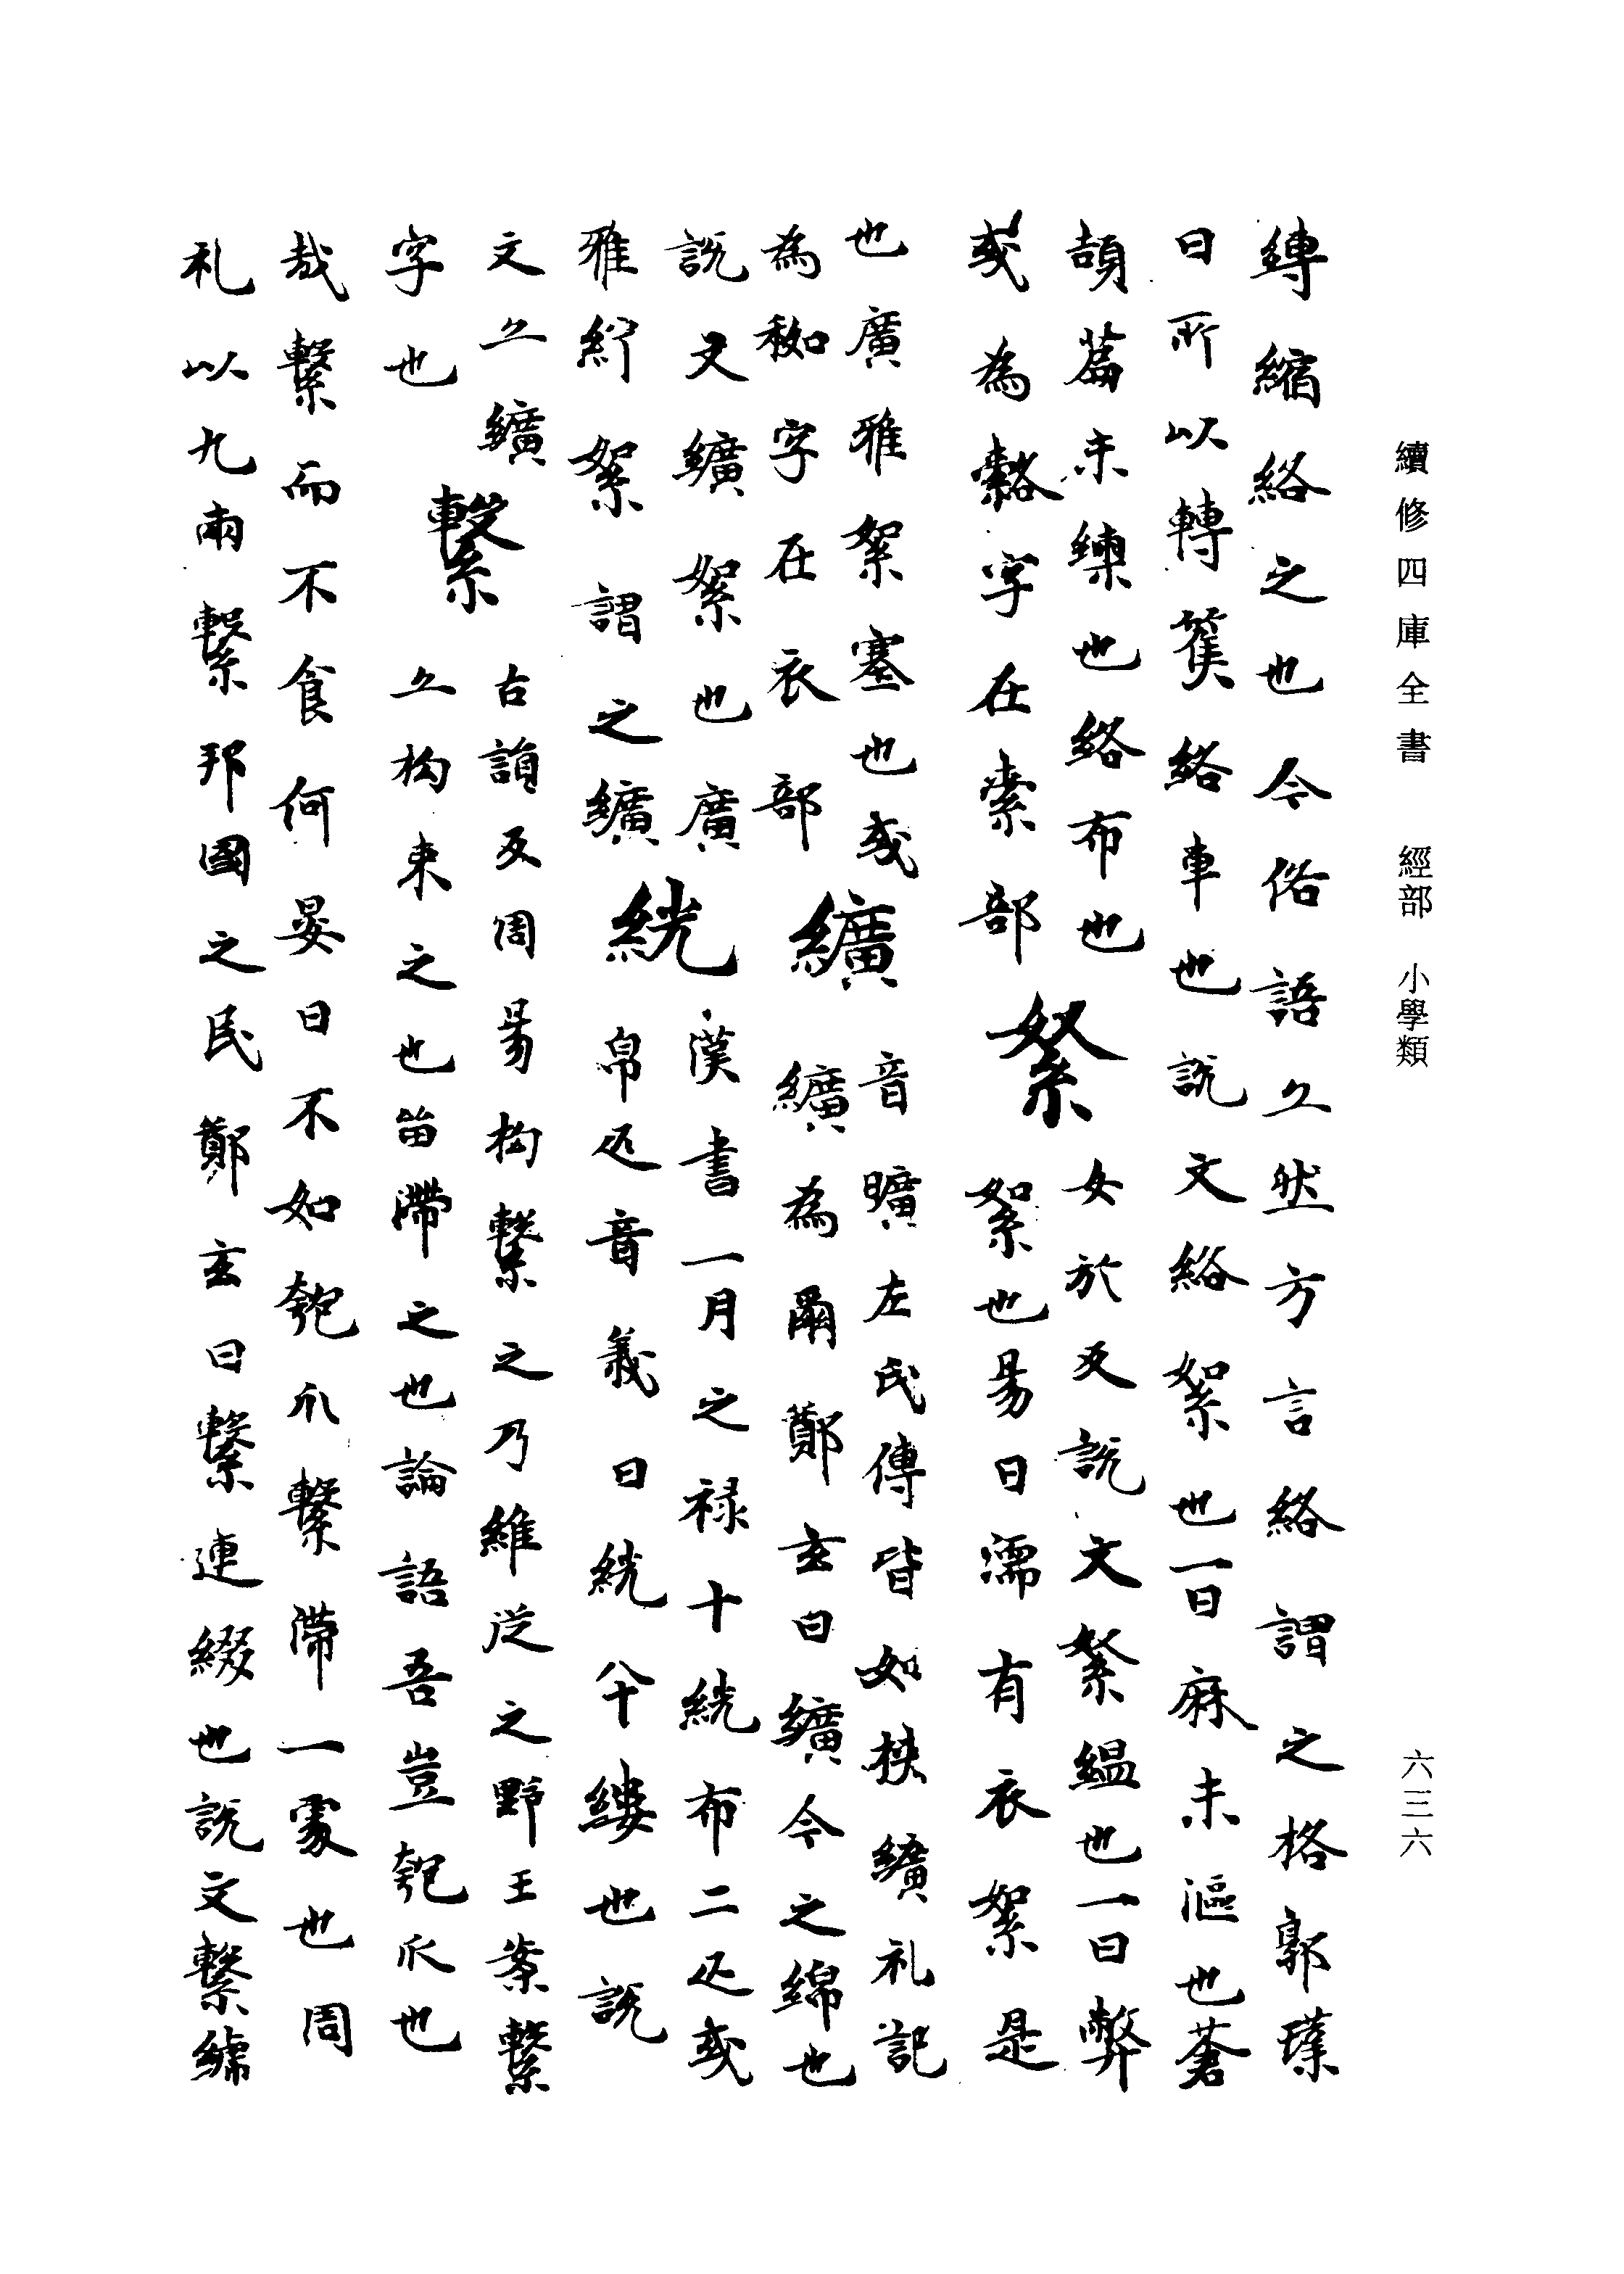 續修四庫全書 經部 小學類
六三六
縳縮絡之也今俗語亦然方言絡謂之格郭璞
曰所以轉籆絡車也說文絡絮也一曰麻未漚也蒼
頡篇未練也絡布也 絮 女於反說文絮縕也一曰弊
絮也易曰濡有衣絮是
或為𦃇字在索部
也廣雅絮塞也或
為袽字在衣部 纊 音曠左氏傳皆如挾纊礼記
纊為繭鄭玄曰纊今之綿也
說文纊絮也廣
雅紵絮謂之纊 絖 漢書一月之禄十絖布二疋或
帛疋音義曰絖八十縷也說
文亦纊
字也 繫 古詣反周易拘繫之乃維從之野王案繫
亦拘束之也留滯之也論語吾豈匏瓜也
哉繫而不食何晏曰不如匏瓜繫滯一處也周
礼以九兩繫邦國之民鄭玄曰繫連綴也說文繫繍